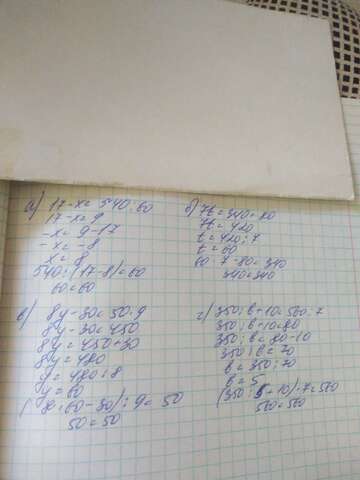 а) 17-x= 540:60
17-x= 9
-x= 9-17
-x= -8
x= 8
540:(17-8)=60
60=60
б) 7t=340+80
7t=420
t=420:7
t=60
60·7-80=340
340=340
в) 8y-30=50·9
8y-30=450
8y=450+30
8y=480
y=480:8
y=60
(8·60-30):9=50
50=50
г) 350:b+10=560:7
350:b+10=80
350:b=80-10
350:b=70
b=350:70
b=5
(350:5+10)·7=560
560=560